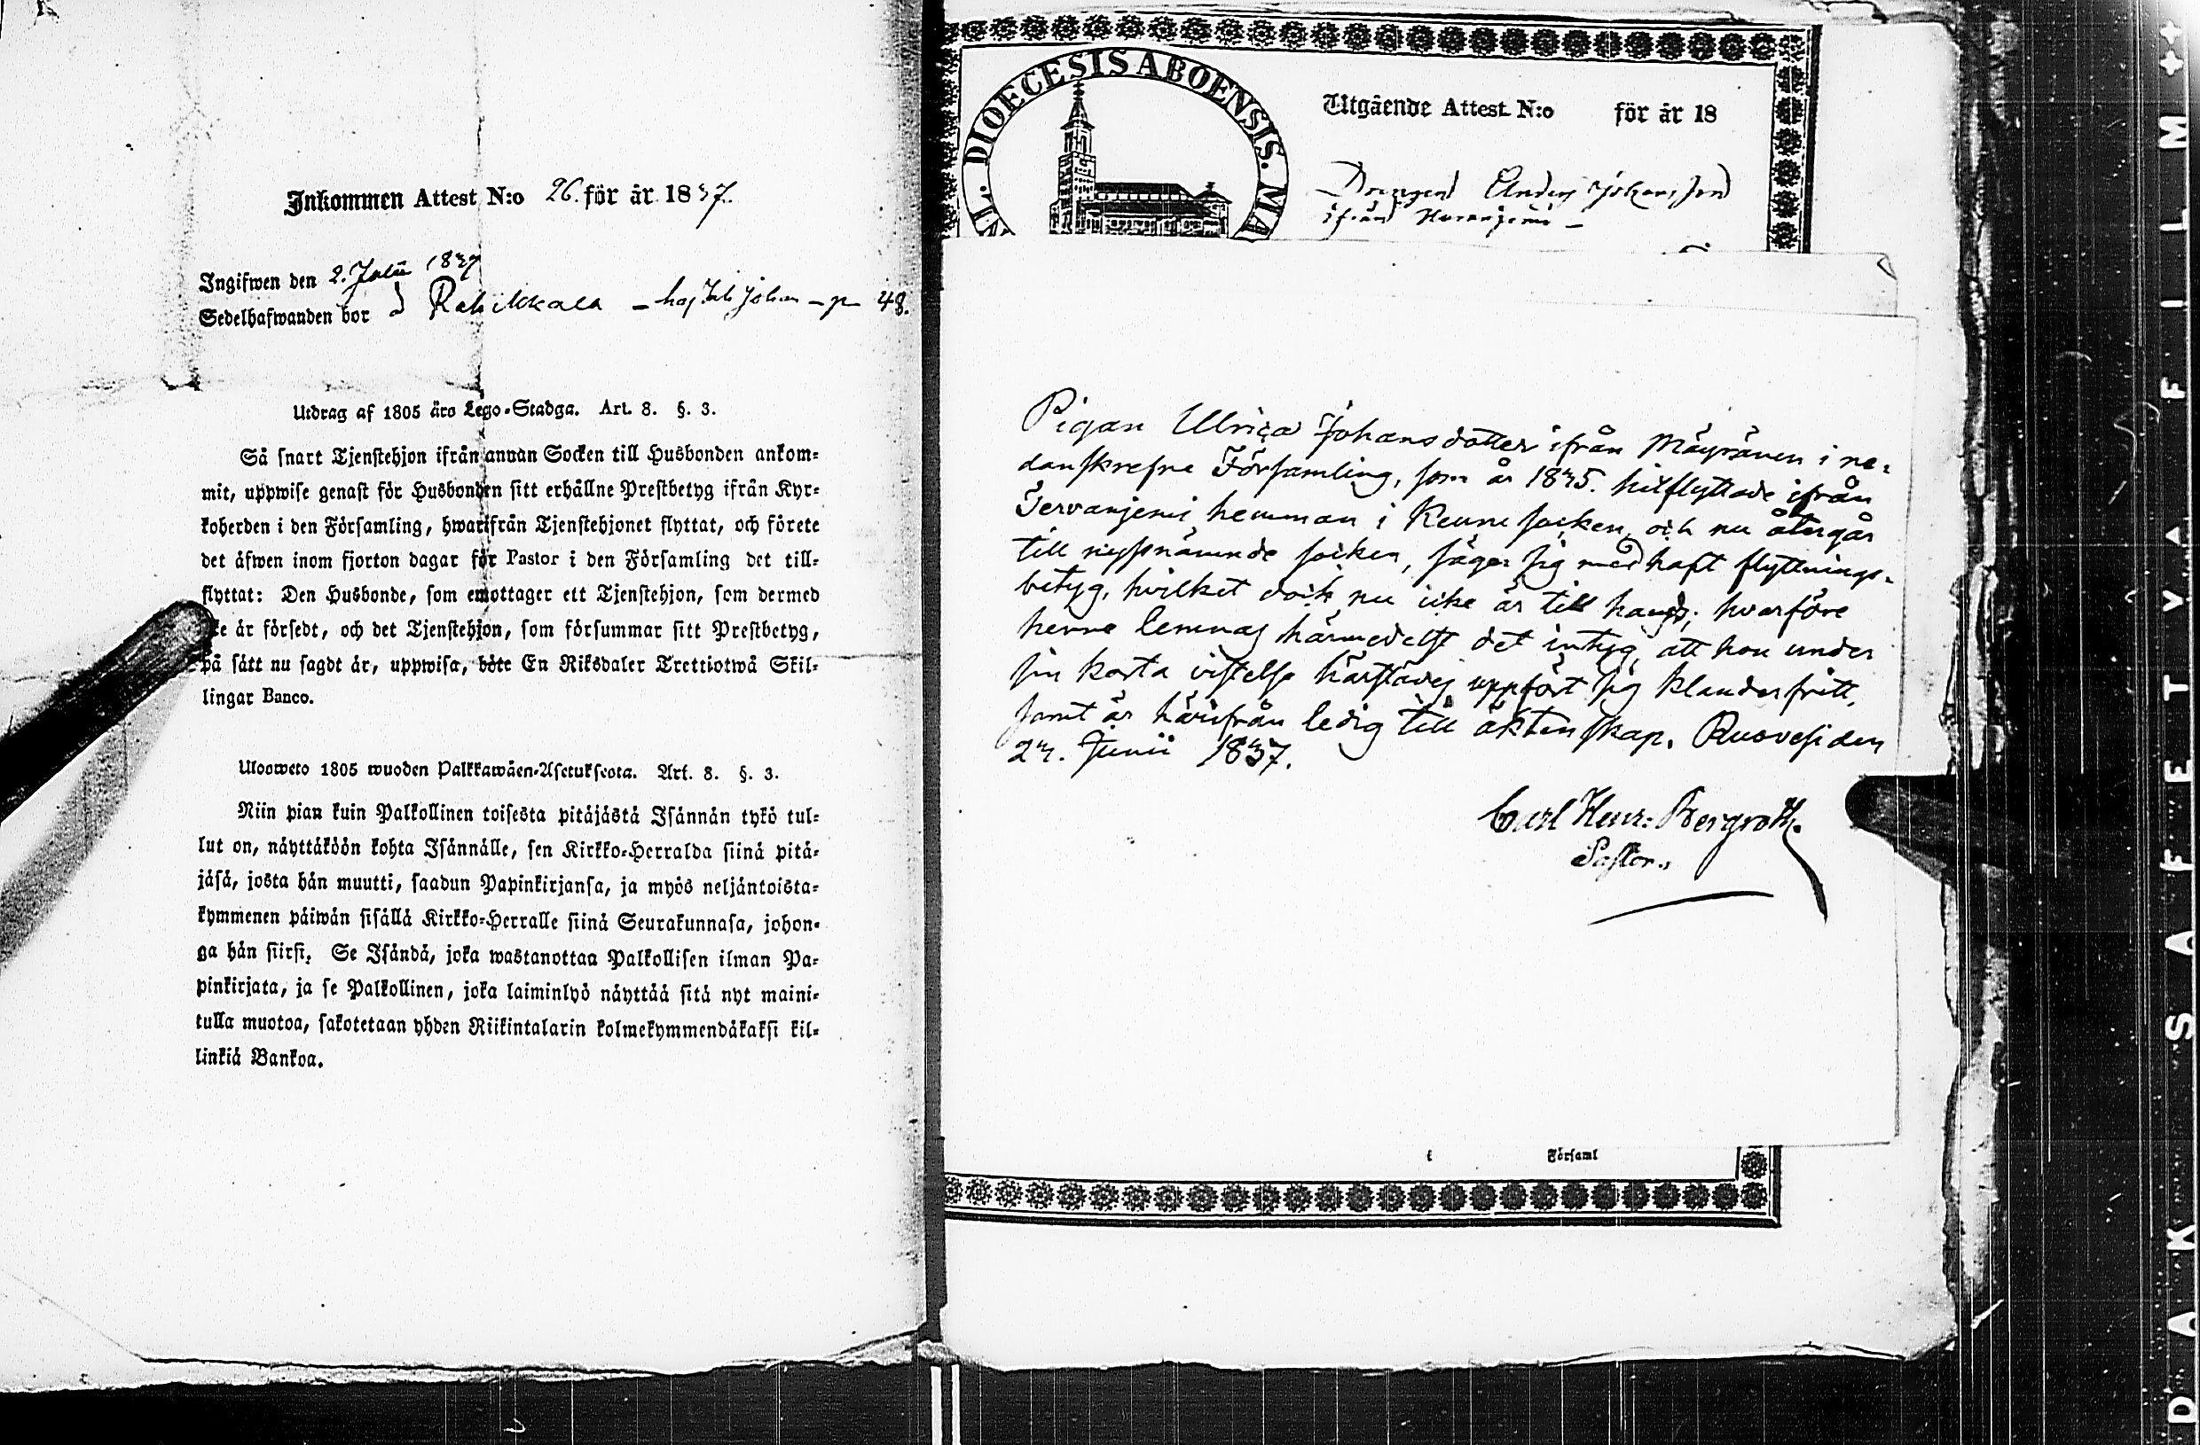 Inkommen Attest N:o 26. för år 1837.
Ingifwen den 2. Julii 1837
Sedelhafwanden bor i Rahikkala — p 48.
Utdrag af 1805 års Lego-Stadga. Art. 8. §. 3.
Så snart Tjenstehjon ifrån annan Socken till Husbonden ankom-
mit, uppwise genast för Husbonden sitt erhållne Prestbetyg ifrån Kyr-
koherden i den Församling, hwarifrån Tjenstehjonet flyttat, och förete
det äfwen inom fjorton dagar för Pastor i den Församling det till-
flyttat: Den Husbonde, som emottager ett Tjenstehjon, som dermed
är försedt, och det Tjenstehjon, som försummar sitt Prestbetyg,
på sätt nu sagdt är, uppwisa, böte En Riksdaler Trettiotwå Skil-
lingar Banco.
Ulosweto 1805 wuoden Palkkawäen-Asetuksesta. Art. 8. §. 3.
Niin pian kuin Palkollinen toisesta pitäjästä Isännän tykö tul-
lut on, näyttäköön kohta Isännälle, sen Kirkko-Herralda siinä pitä-
jäsä, josta hän muutti, saadun Papinkirjansa, ja myös neljäntoista-
kymmenen päiwän sisällä Kirkko-Herralle siinä Seurakunnasa, johon-
ga hän siirsi. Se Isändä, joka wastanottaa Palkollisen ilman Pa-
pinkirjata, ja se Palkollinen, joka laiminlyö näyttää sitä nyt maini-
tulla muotoa, sakotetaan yhden Riikintalarin kolmekymmendäkaksi kil-
linkiä Bankoa.
DIOECESIS ABOENSIS. MA
Utgående Attest N:o för år 18
Drengen Anders Johansson
ifrån
Pigan Ulrica Johansdotter ifrån Mäyränen i ne-
danskrefne Församling, som år 1835. hitflyttade ifrån
Jervanjemi hemman i Keuru socken, och nu återgår
till nyssnämnde socken, säger sig medhaft flyttnings-
betyg, hvilket dock nu icke är till hands; hvarföre
henne lemnas härmedelst det intyg, att hon under
sin korta vistelse härstädes uppfört sig klanderfritt,
samt är härifrån ledig till äktenskap. Ruovesi den
23. Junii 1837.
Carl Henr: Bergroth.
Pastor.
i Församl
DAK SAFETY A FILM ++